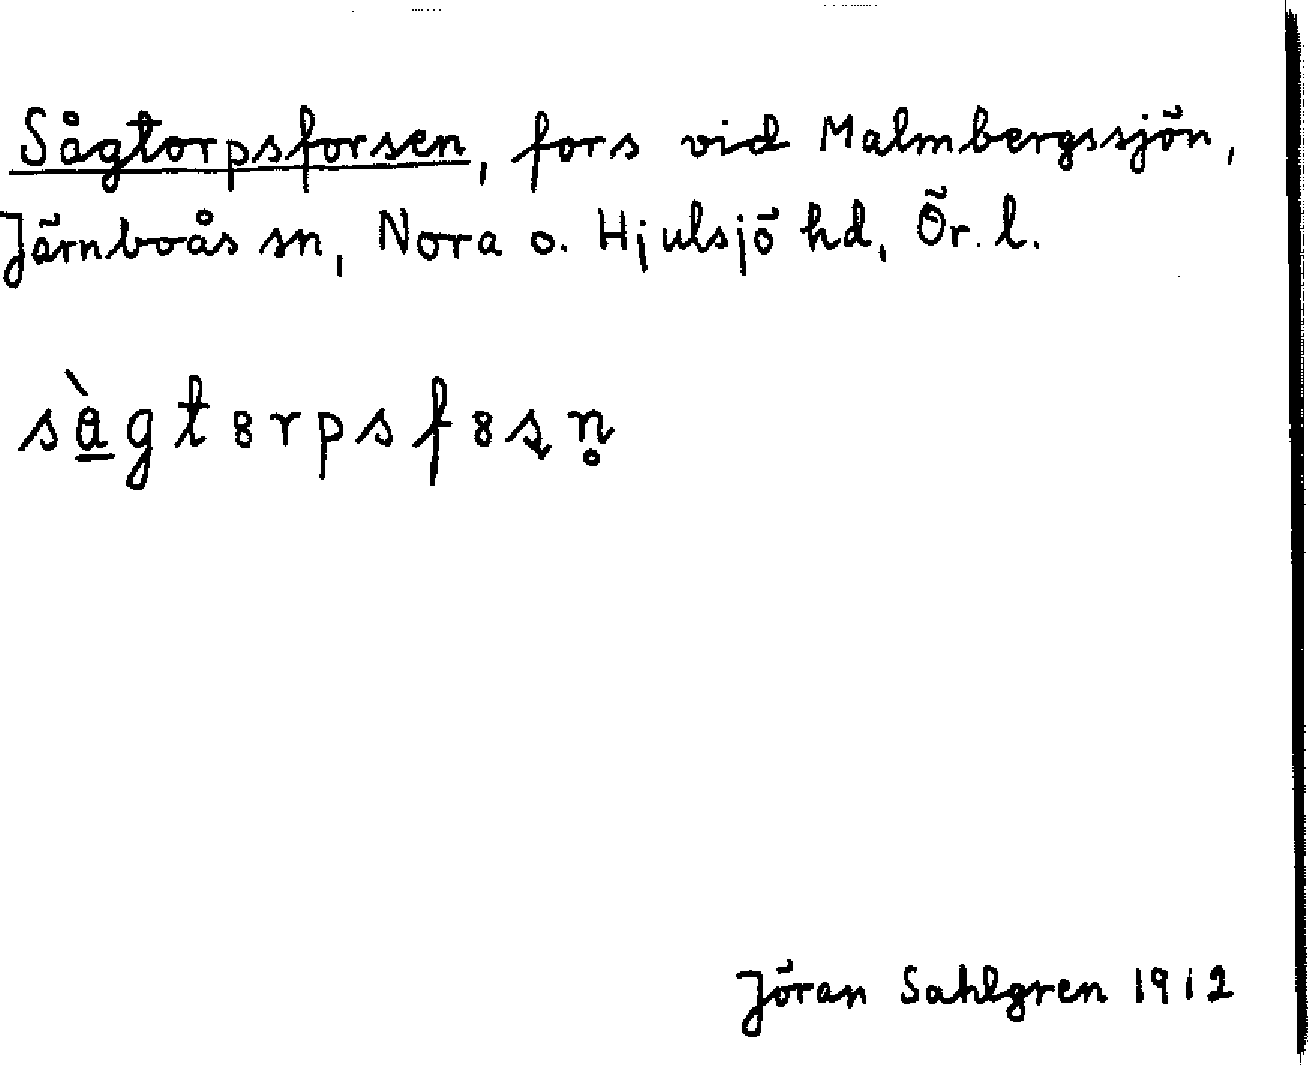 Sågtorpsforsen, fors vid Malmbergssjön,
Järnboås sn, Nora o. Hjulsjö hd, Ör. l.
sàgt8rpsf8ʂn̥
Jöran Sahlgren 1912